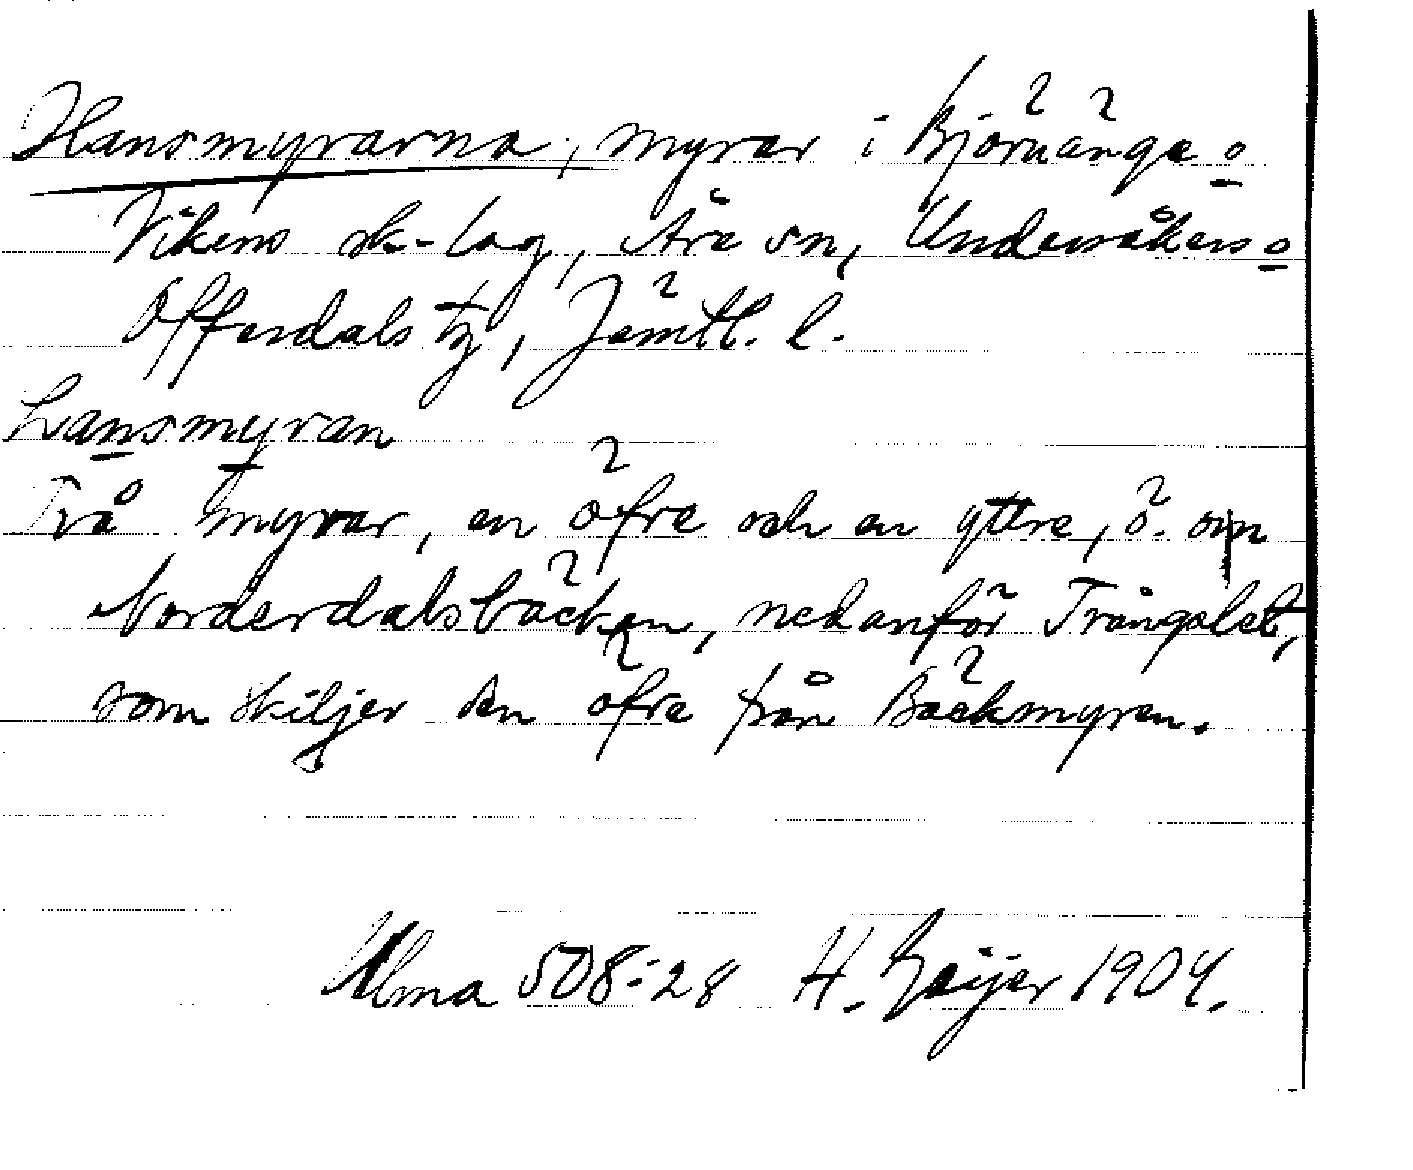 Hansmyrarna, myrar i Björnänge o
Vikens sk-lag, Åre sn, Undersåkers o
Offerdals tg, Jämtl. l.
Lansmyran
Två myrar, en öfre och en yttre, ö. om
Norderdalsbäcken, nedanför Trångslet,
som skiljer den öfre från Bäckmyren.
Ulma 508:28 H. Geijer 1904.